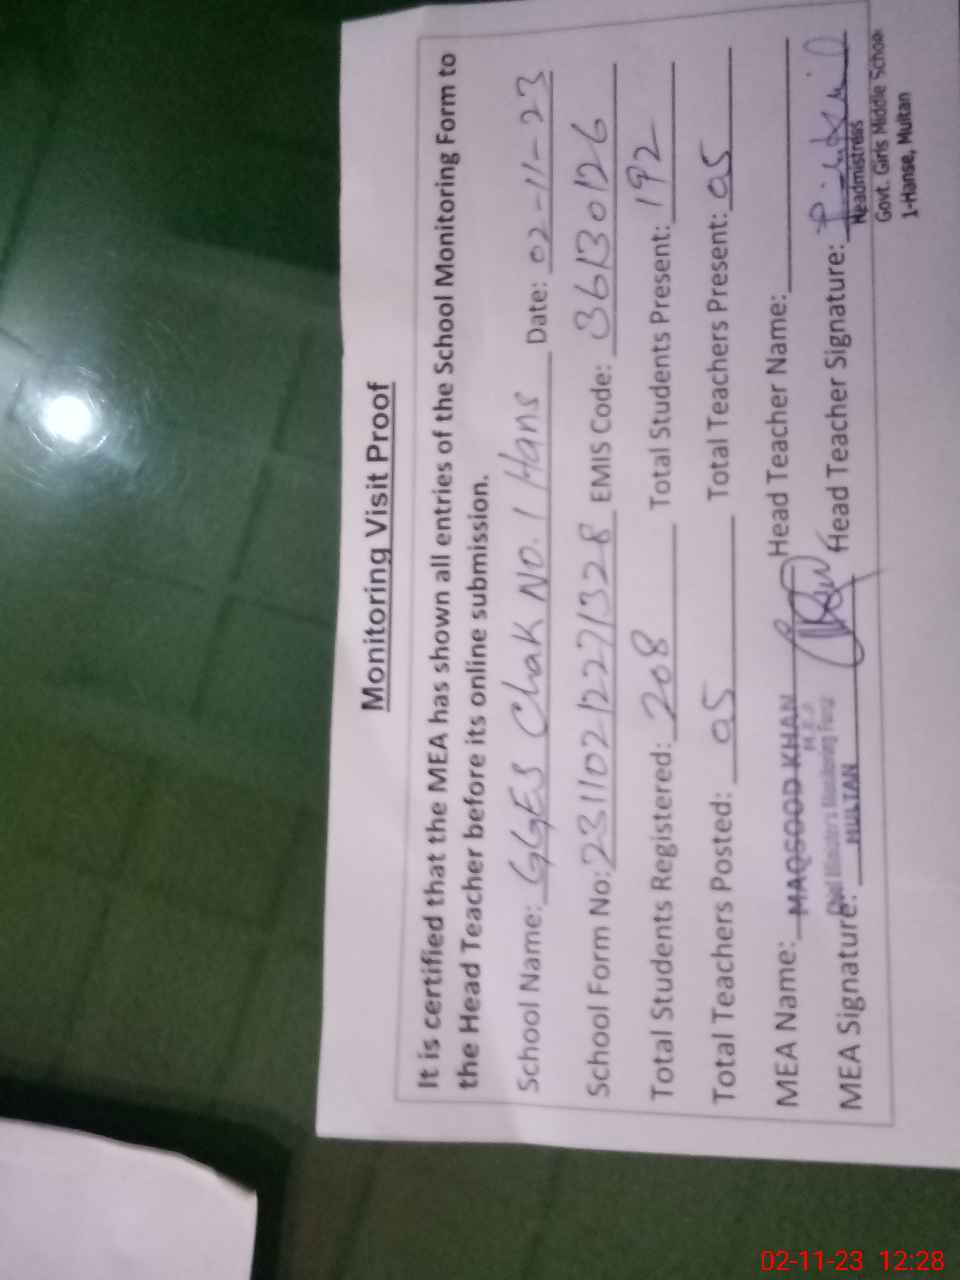 Monitoring Visit Proof
It is certified that the MEA has shown all entries of the School Monitoring Form to
the Head Teacher before its online submission.
School Name: GGES Chak No. 1 Hans Date: 02-11-23
School Form No: 23110212271328 EMIS Code: 36130126
Total Students Registered: 208 Total Students Present: 192
Total Teachers Posted: 05 Total Teachers Present: 05
MEA Name: MAQSOOD KHAN Head Teacher Name:
M.E.A
Chief Minister's Monitoring Force
MEA Signature: MULTAN Head Teacher Signature:
Headmistress
Govt. Girls Middle School
1-Hanse, Multan
02-11-23 12:28